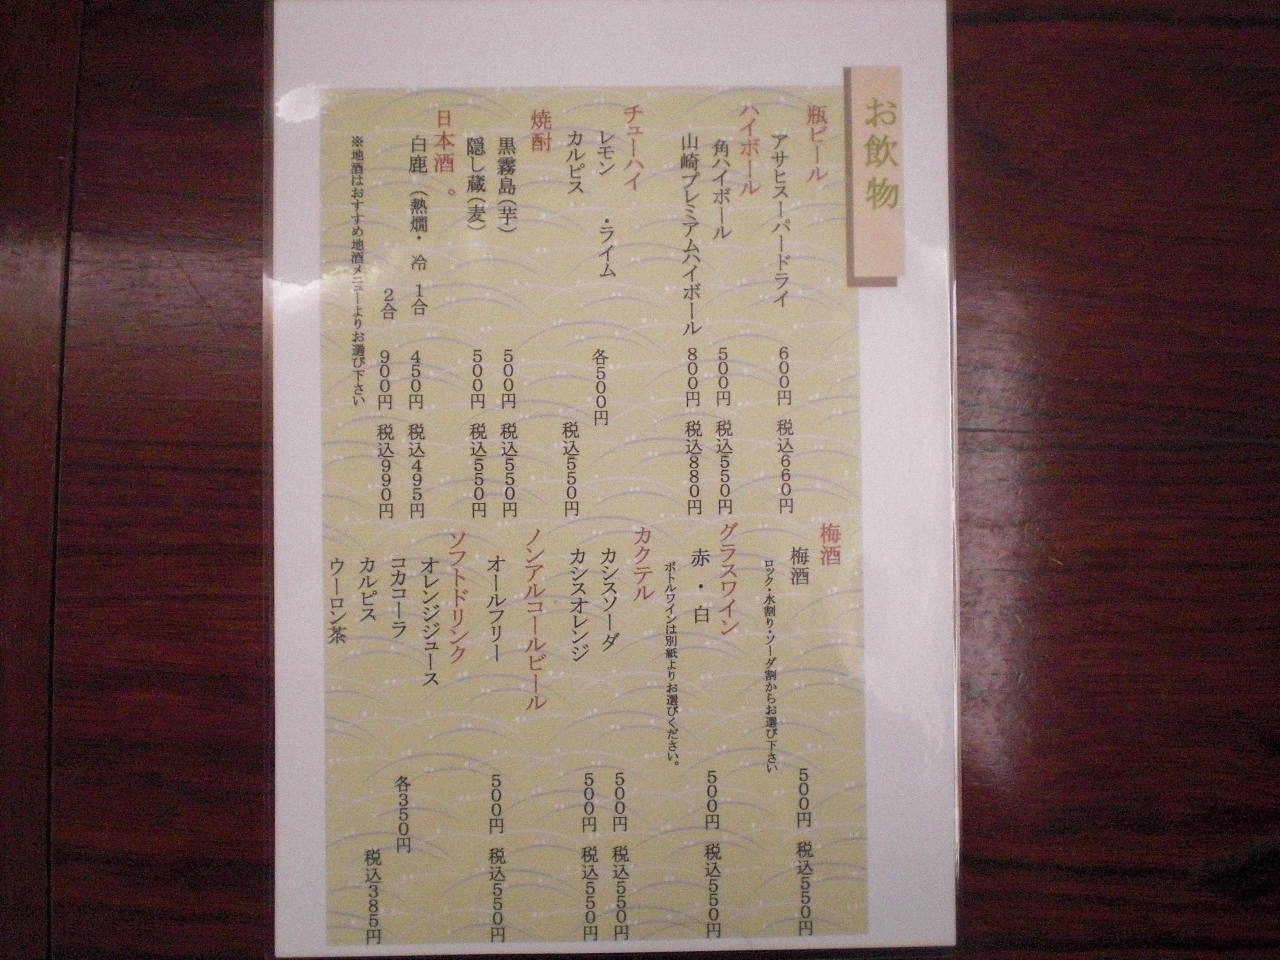 お飲物
瓶ビール
アサヒスーパードライ 600円 税込660円
ハイボール
角ハイボール 500円 税込550円
山崎プレミアムハイボール 800円 税込880円
チューハイ
レモン ・ライム 各500円
カルピス 税込550円
焼酎
黒霧島(芋) 500円 税込550円
隠し蔵(麦) 500円 税込550円
日本酒 。
白鹿 (熱燗・ 冷 1合 450円 税込495円
2合 900円 税込990円
※地酒はおすすめ地酒メニューよりお選び下さい
梅酒
梅酒 500円 税込550円
ロック・水割り・ソーダ割からお選び下さい
グラスワイン
赤 ・ 白 500円 税込550円
ボトルワインは別紙よりお選びください。
カクテル
カシスソーダ 500円 税込550円
カシスオレンジ 500円 税込550円
ノンアルコールビール
オールフリー 500円 税込550円
ソフトドリンク
オレンジジュース
コカコーラ 各350円
カルピス 税込385円
ウーロン茶